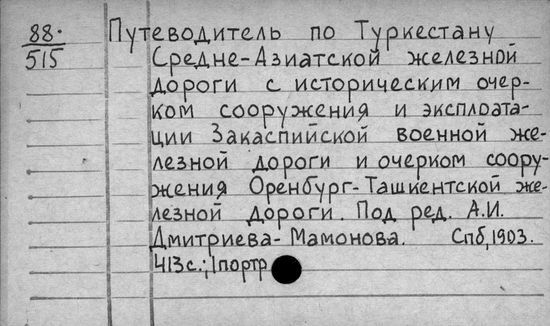 88.
515
Путеводитель по Туркестану
Средне-Азиатской железной
дороги с историческим очер-
ком сооружения и эксплоата-
ции Закаспийской военной же-
лезной дороги и очерком соору-
жения Оренбург-Ташкентской же-
лезной дороги. Под ред. А.И.
Дмитриева-Мамонова. Спб, 1903.
413с.; 1портр